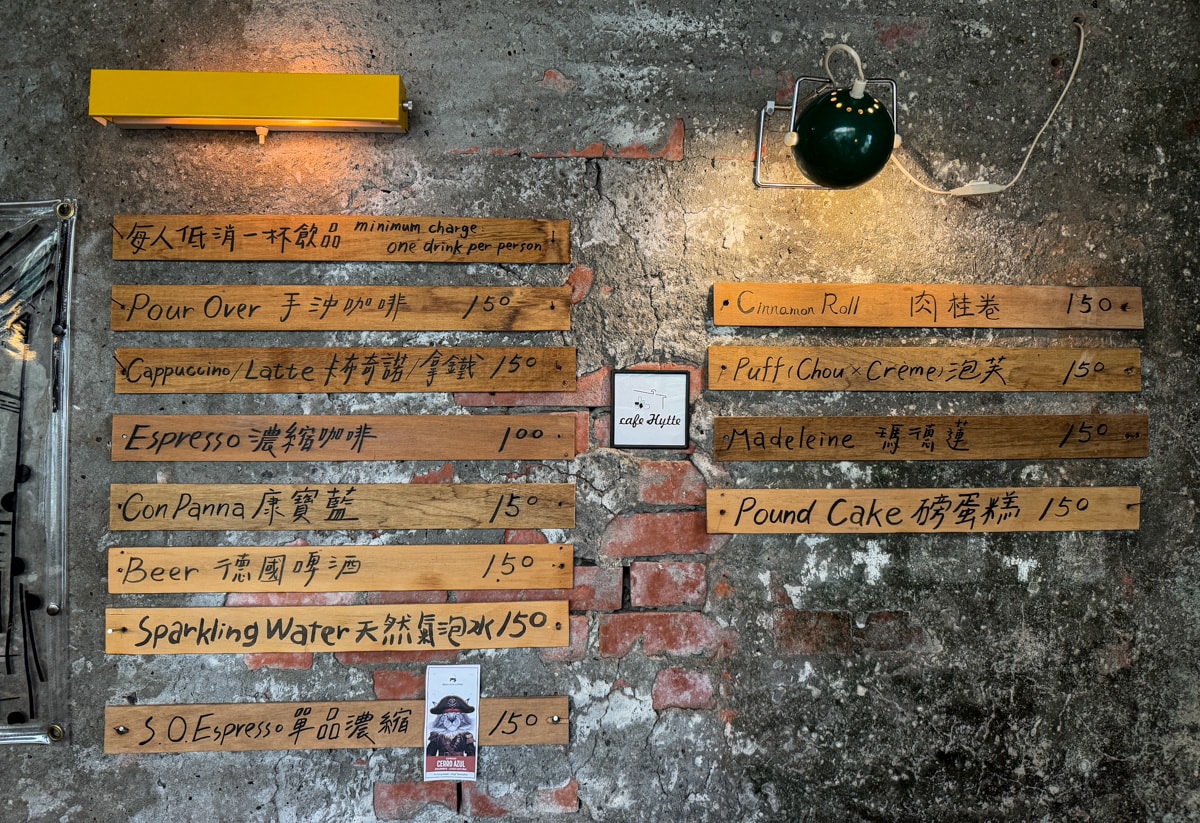 每人低消一杯飲品 minimum charge
one drink per person
Pour Over 手沖咖啡 150
Cappuccino/Latte 卡布奇諾/拿鐵 150
Espresso 濃縮咖啡 100
Con Panna 康寶藍 150
Beer 德國啤酒 150
Sparkling Water 天然氣泡水 150
S.O.Espresso 單品濃縮 150
CERRO AZUL
cafe Hytte
Cinnamon Roll 肉桂卷 150
Puff(Chou×Crème)泡芙 150
Madeleine 瑪德蓮 150
Pound Cake 磅蛋糕 150